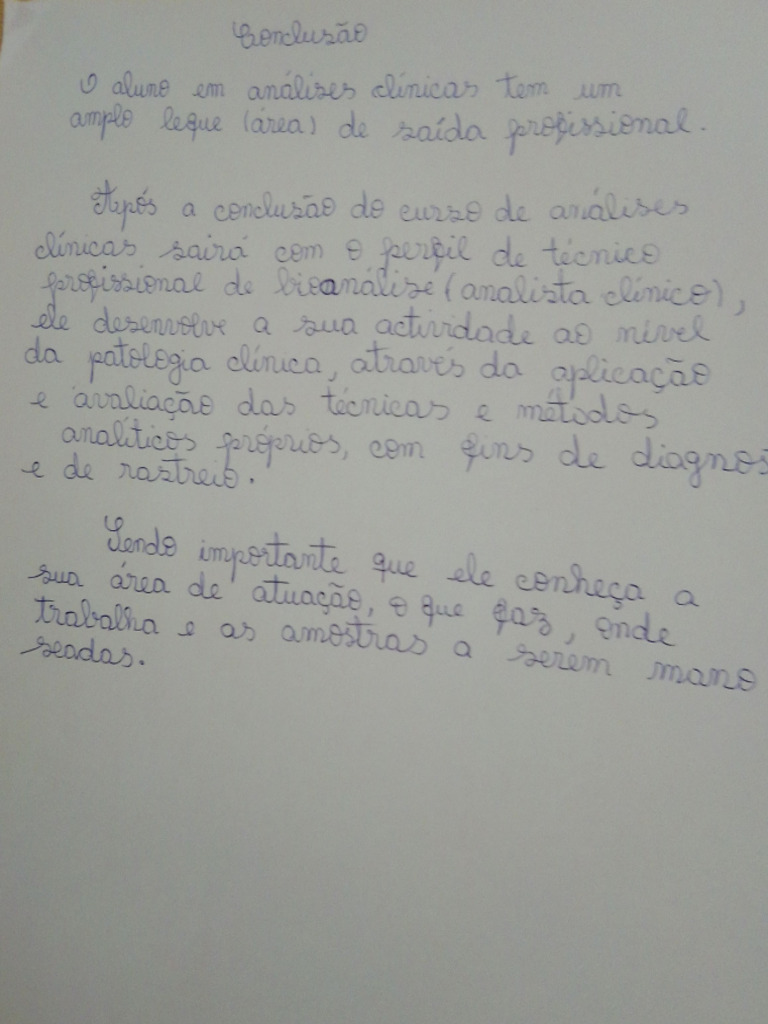 Conclusão
O aluno em análises clínicas tem um
amplo leque (área) de saída profissional.
Após a conclusão do curso de análises
clínicas sairá com o perfil de técnico
profissional de bioanálise (analista clínico),
ele desenvolve a sua actividade ao nível
da patologia clínica, através da aplicação
e avaliação das técnicas e métodos
analíticos próprios, com fins de diagnos
e de rastreio.
Sendo importante que ele conheça a
sua área de atuação, o que faz, onde
trabalha e as amostras a serem mano
seadas.